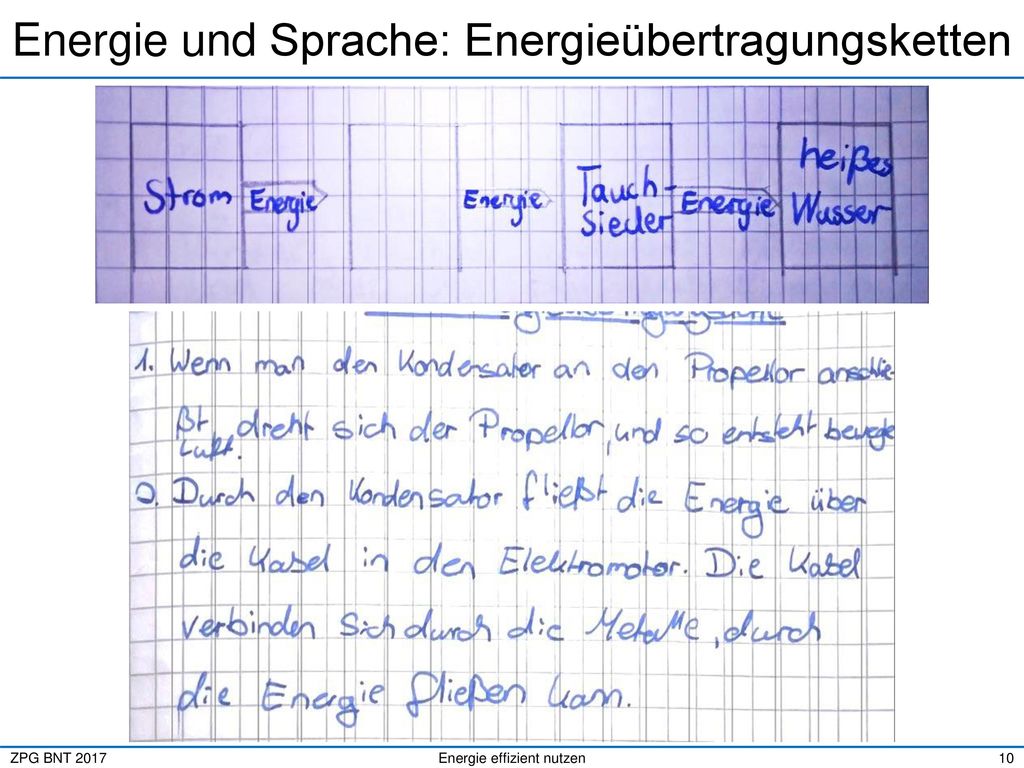 Energie und Sprache: Energieübertragungsketten
Strom Energie Energie Tauch- Sieder Energie heißes Wasser
1. Wenn man den Kondensator an den Propellor anschlie-
ßt, dreht sich der Propellor, und so entsteht bewegte
Luft.
2. Durch den Kondensator fließt die Energie über
die Kabel in den Elektromotor. Die Kabel
verbinden Sich durch die Metalle, durch
die Energie fließen kann.
ZPG BNT 2017 Energie effizient nutzen 10